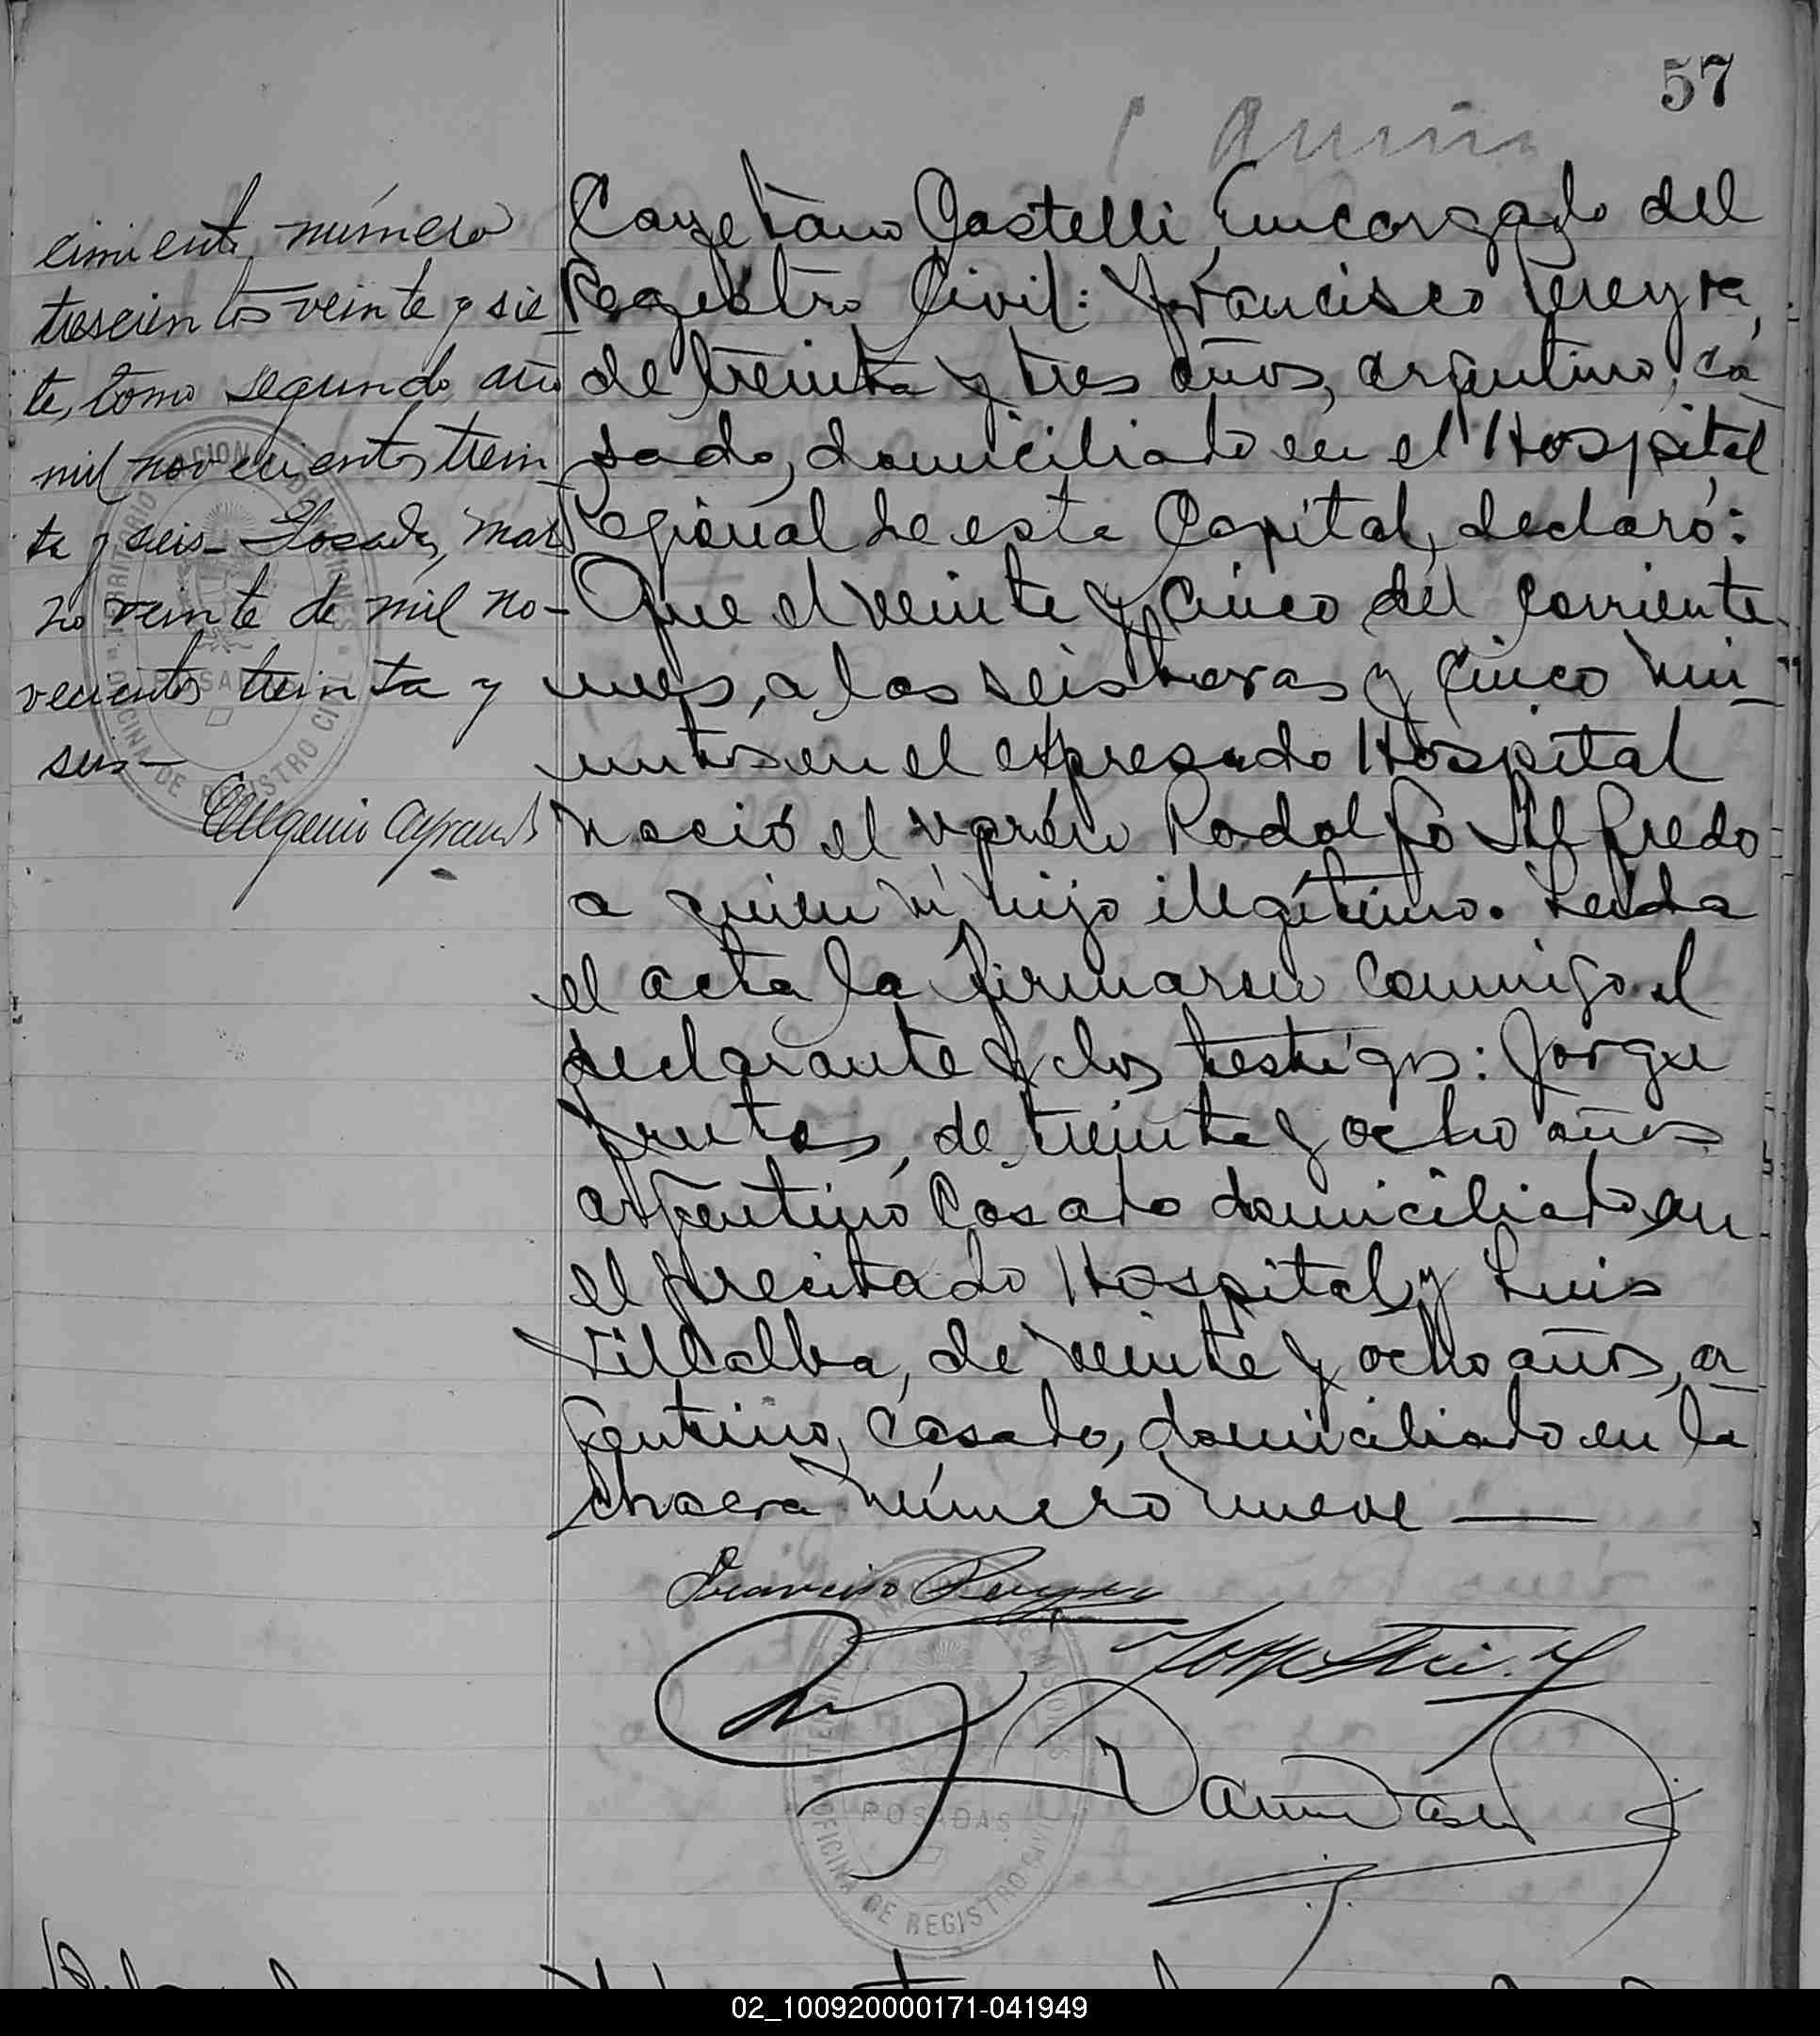 57
cimiento número
trescientos veinte y sie
te, tomo segundo, año
mil novecientos trein
ta y seis - Posadas, mar
zo veinte de mil no-
vecientos treinta y
seis-
Cayetano Castelli, Encargado del
Registro Civil: Francisco Pereyra,
de treinta y tres años, argentino, ca
sado, domiciliado en el Hospital
Regional de esta Capital, declaró:
Que el veinte y cinco del corriente
mes, a las seis horas y cinco mi_
nutos en el expresado Hospital
nació el varón Rodolfo Alfredo
a quien vi, hijo ilegítimo. Leída
el acta la firmaron conmigo el
declarante y los testigos: Jorge
Frutos, de treinta y ocho años
argentino casado domiciliado en
el precitado Hospital y Luis
Villalba, de veinte y ocho años, ar
gentino, casado, domiciliado en la
chacra número nueve —
Francisco Pereyra
POSADAS
OFICINA DE REGISTRO CIVIL
02_100920000171-041949